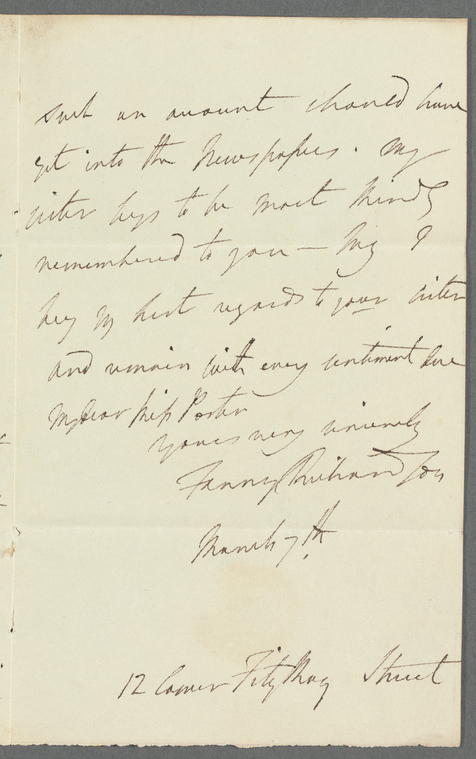 such an account should have
got into the Newspapers. My
sister begs to be most kindly
remembered to you — may I
beg my best regards to your sister
and remain with every sentiment
My dear Miss Porter
yours very sincerely
Fanny Richardson
March 7th
12 Fitzroy Street